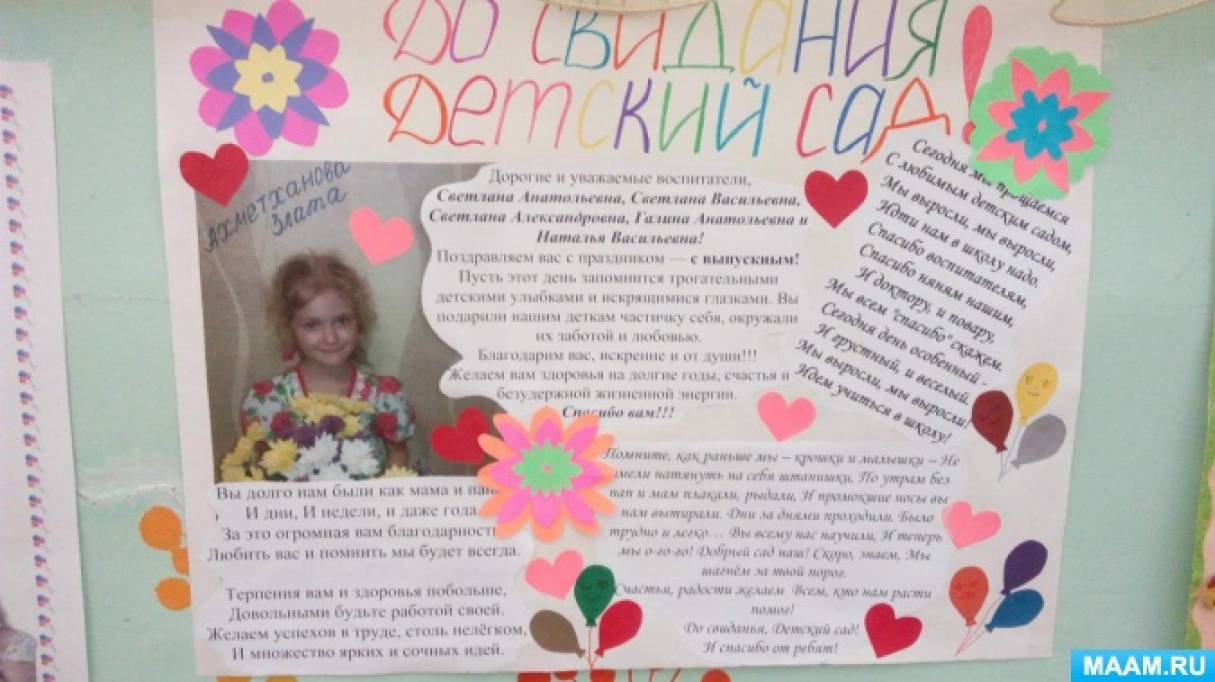 До свидания
Детский сад!
Ахметханова
Злата
Дорогие и уважаемые воспитатели,
Светлана Анатольевна, Светлана Васильевна,
Светлана Александровна, Галина Анатольевна и
Наталья Васильевна!
Поздравляем вас с праздником — с выпускным!
Пусть этот день запомнится трогательными
детскими улыбками и искрящимися глазками. Вы
подарили нашим деткам частичку себя, окружали
их заботой и любовью.
Благодарим вас, искренне и от души!!!
Желаем вам здоровья на долгие годы, счастья и
безудержной жизненной энергии.
Спасибо вам!!!
Сегодня мы прощаемся
С любимым детским садом,
Мы выросли, мы выросли,
Идти нам в школу надо.
Спасибо воспитателям,
Спасибо няням нашим,
И доктору, и повару,
Мы всем "спасибо" скажем.
Сегодня день особенный -
И грустный, и веселый.
Мы выросли, мы выросли!
Идем учиться в школу!
Вы долго нам были как мама и
И дни, И недели, и даже года.
За это огромная вам благодарность
Любить вас и помнить мы будет всегда.
Терпения вам и здоровья побольше,
Довольными будьте работой своей.
Желаем успехов в труде, столь нелёгком,
И множество ярких и сочных идей.
Помните, как раньше мы – крошки и малышки – Не
умели натянуть на себя штанишки. По утрам без
пап и мам плакали, рыдали, И промокшие носы вы
нам вытирали. Дни за днями проходили. Было
трудно и легко… Вы всему нас научили, И теперь
мы о-го-го! Добрый сад наш! Скоро, знаем, Мы
шагнём за твой порог.
Счастья, радости желаем Всем, кто нам расти
помог!
До свиданья, Детский сад!
И спасибо от ребят!
MAAM.RU